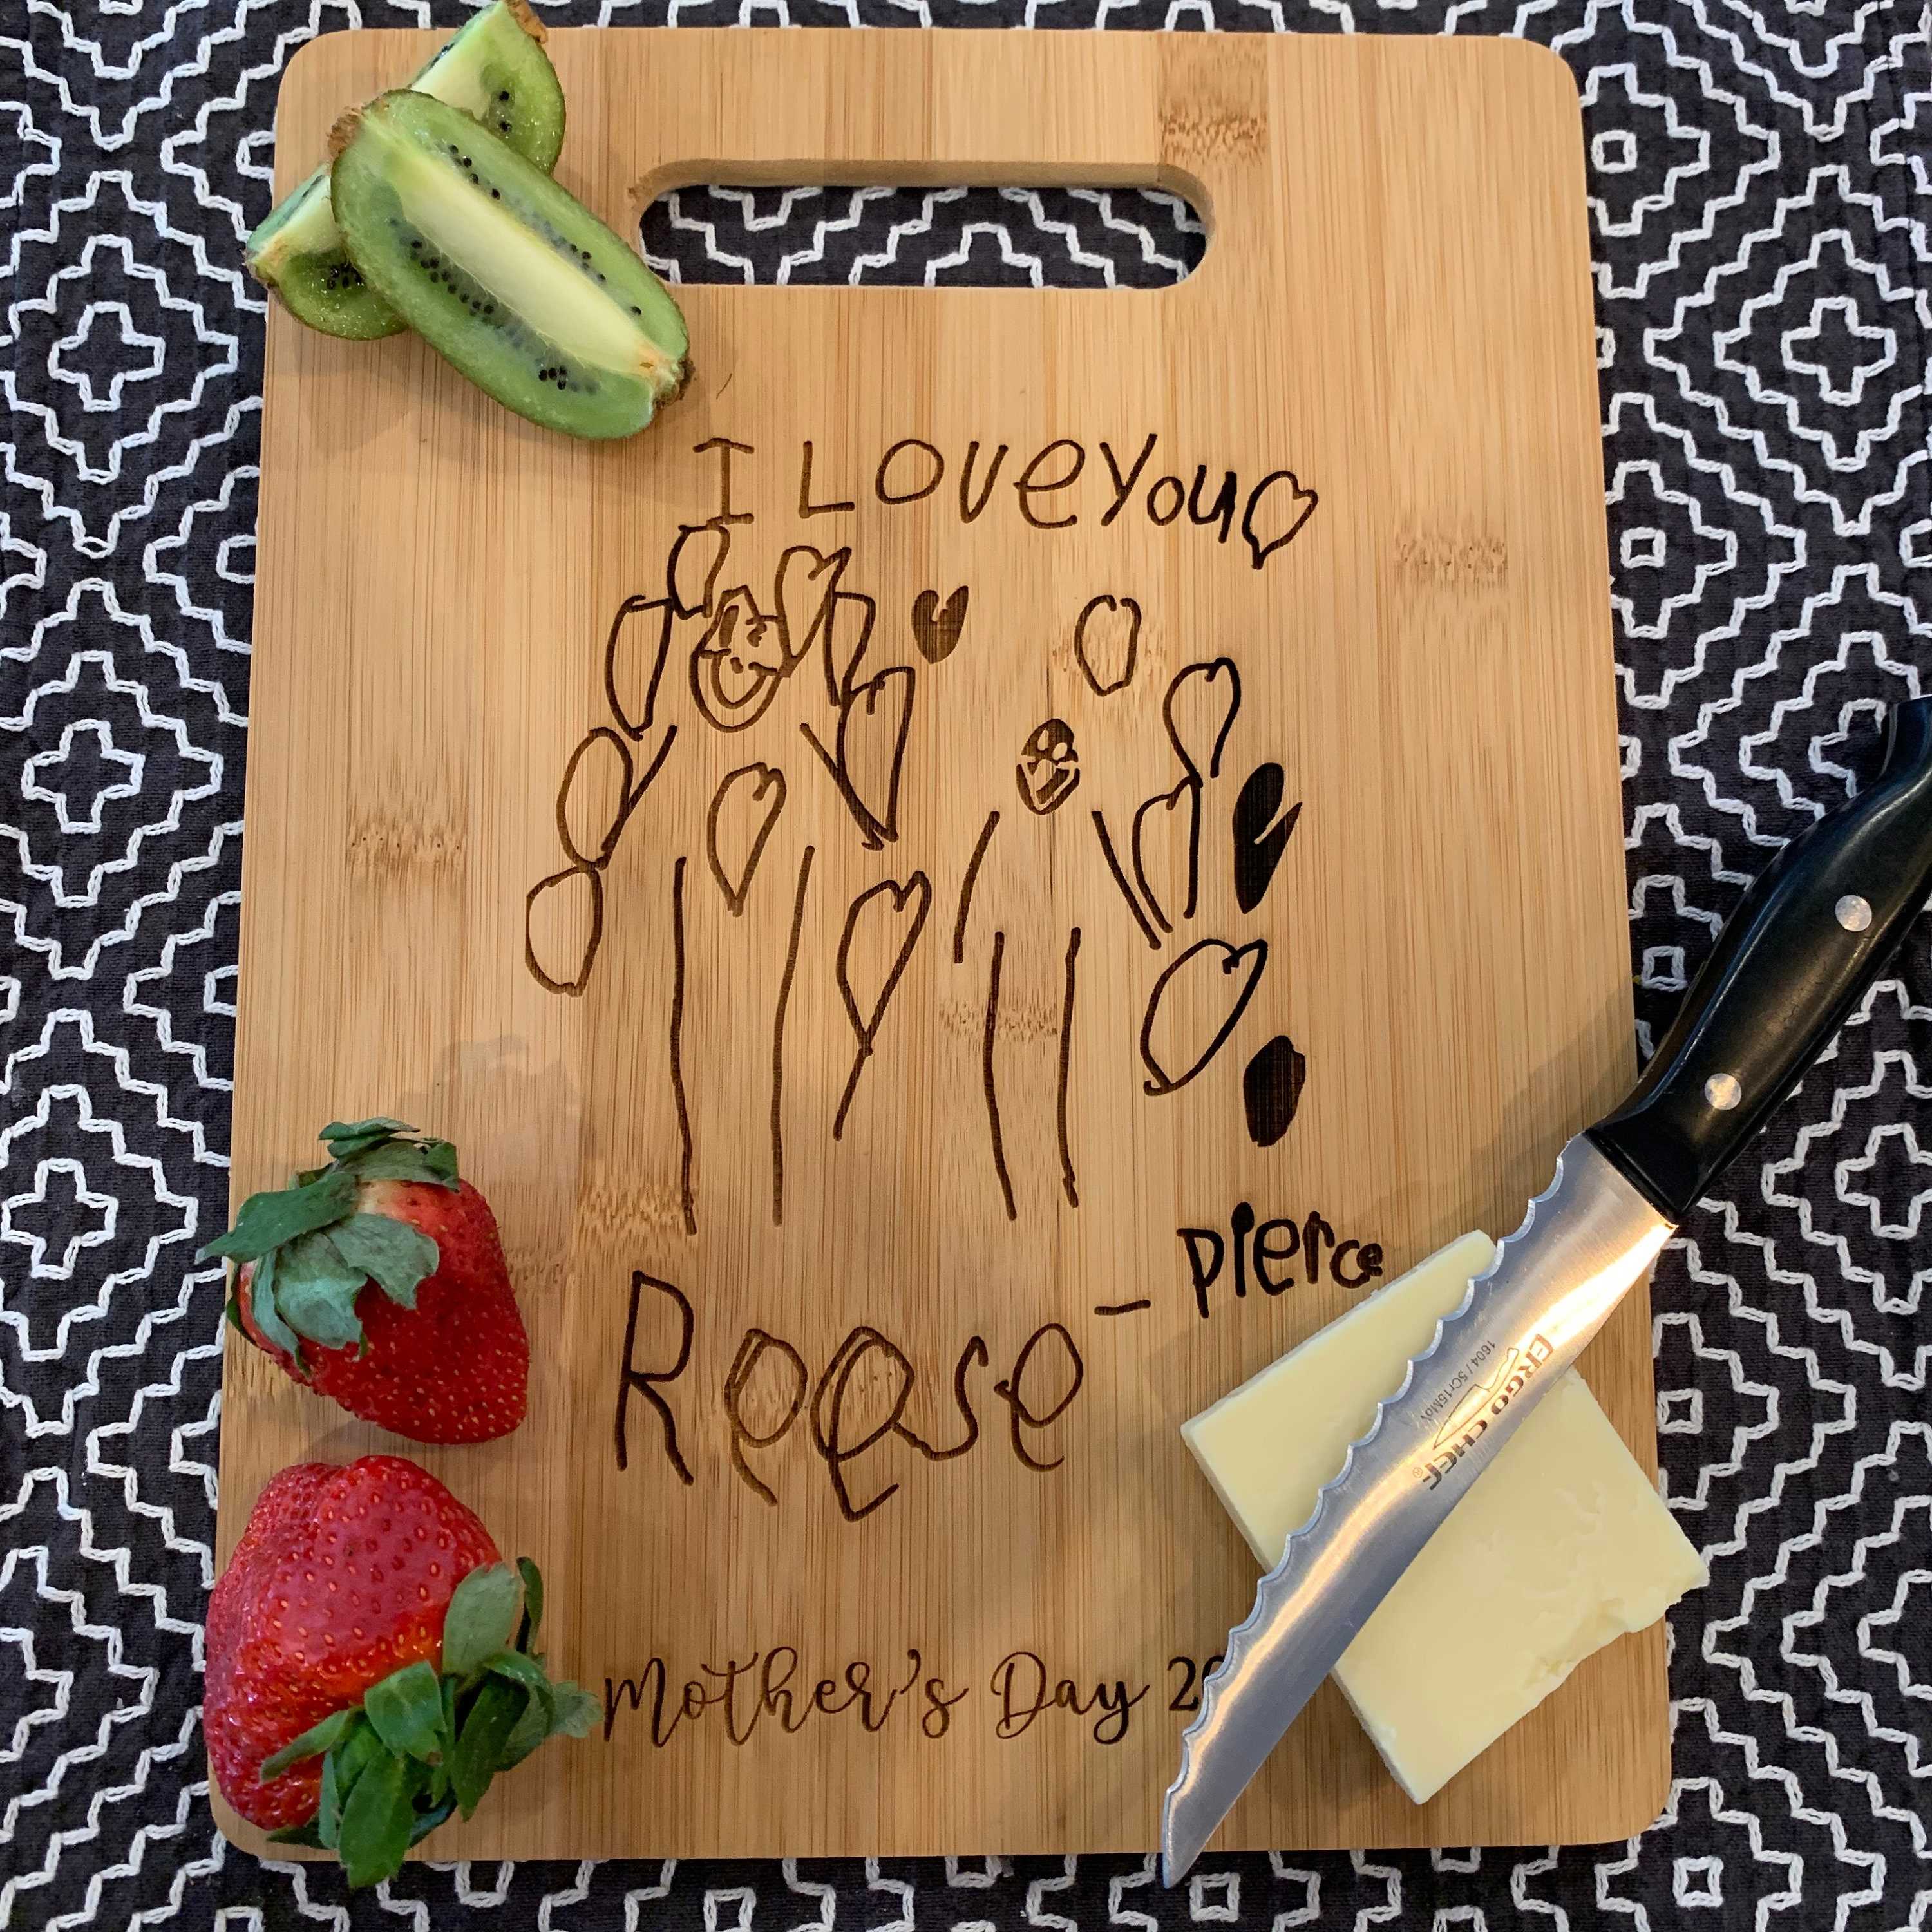 I Love you
Pierce
Reese -
Mother's Day 2
ERGO CHEF®
1604 / 5Cr15MoV